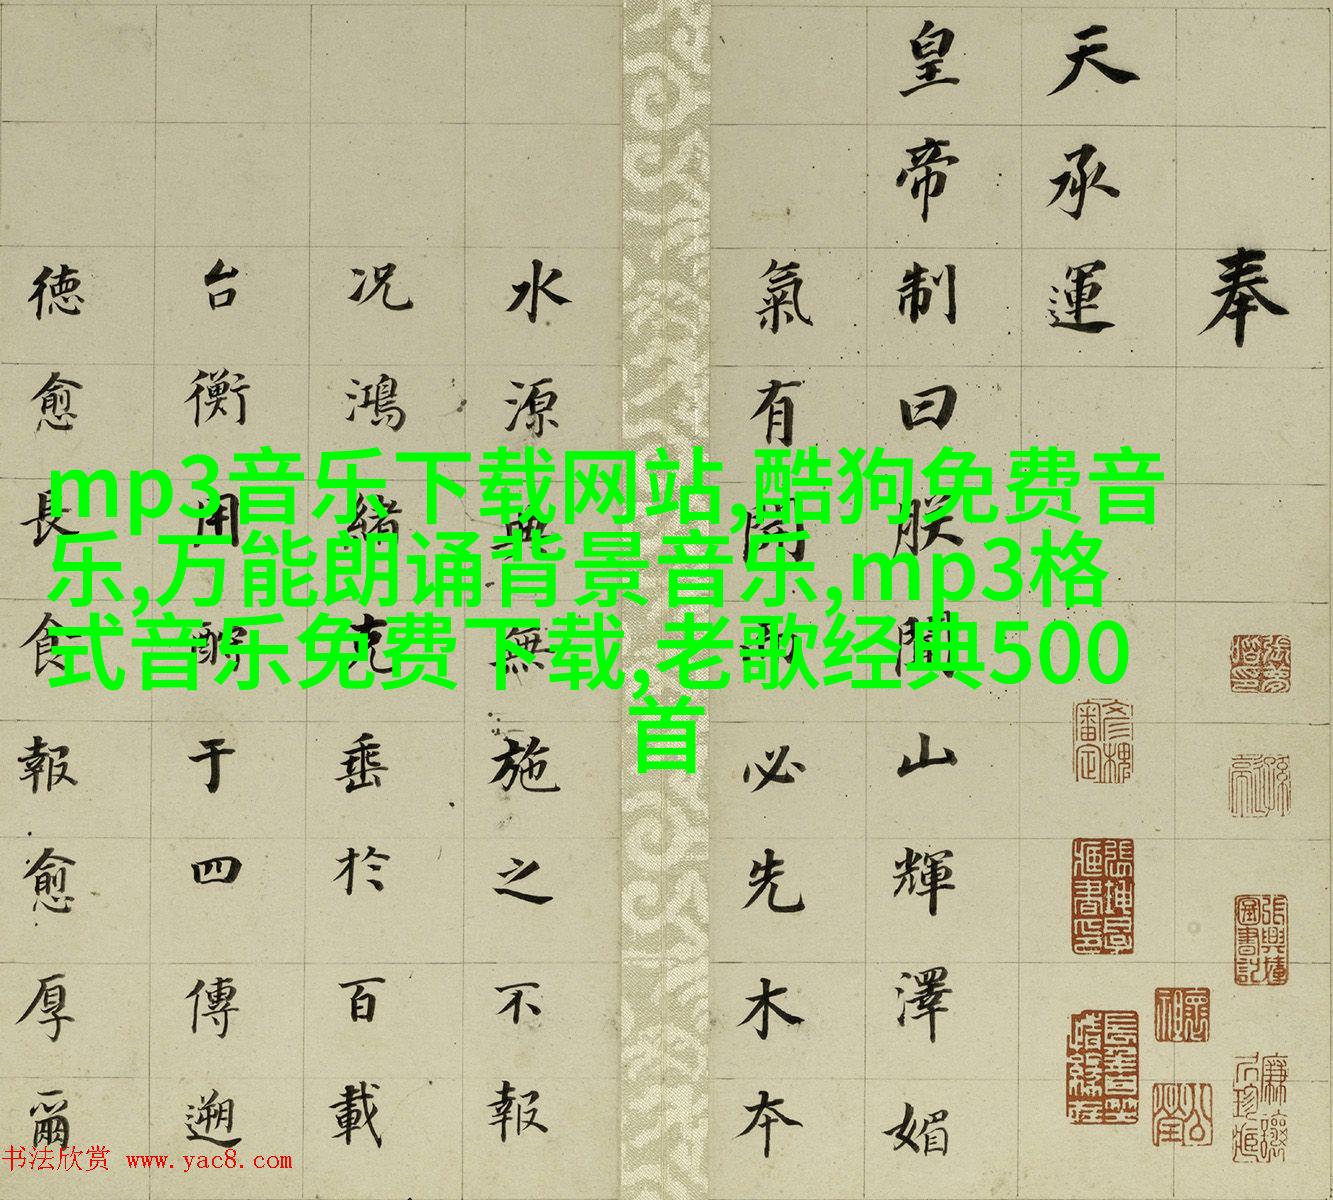 奉
天承運
皇帝制曰朕聞山輝澤媚
氣有開必先木本
水源無施之不報
况鴻緒克垂於百載
台衡用酬于四傳遡
德愈長食報愈厚爾
mp3音乐下载网站,酷狗免费音
乐,万能朗诵背景音乐,mp3格
式音乐免费下载,老歌经典500
首
书法欣赏 www.yac8.com